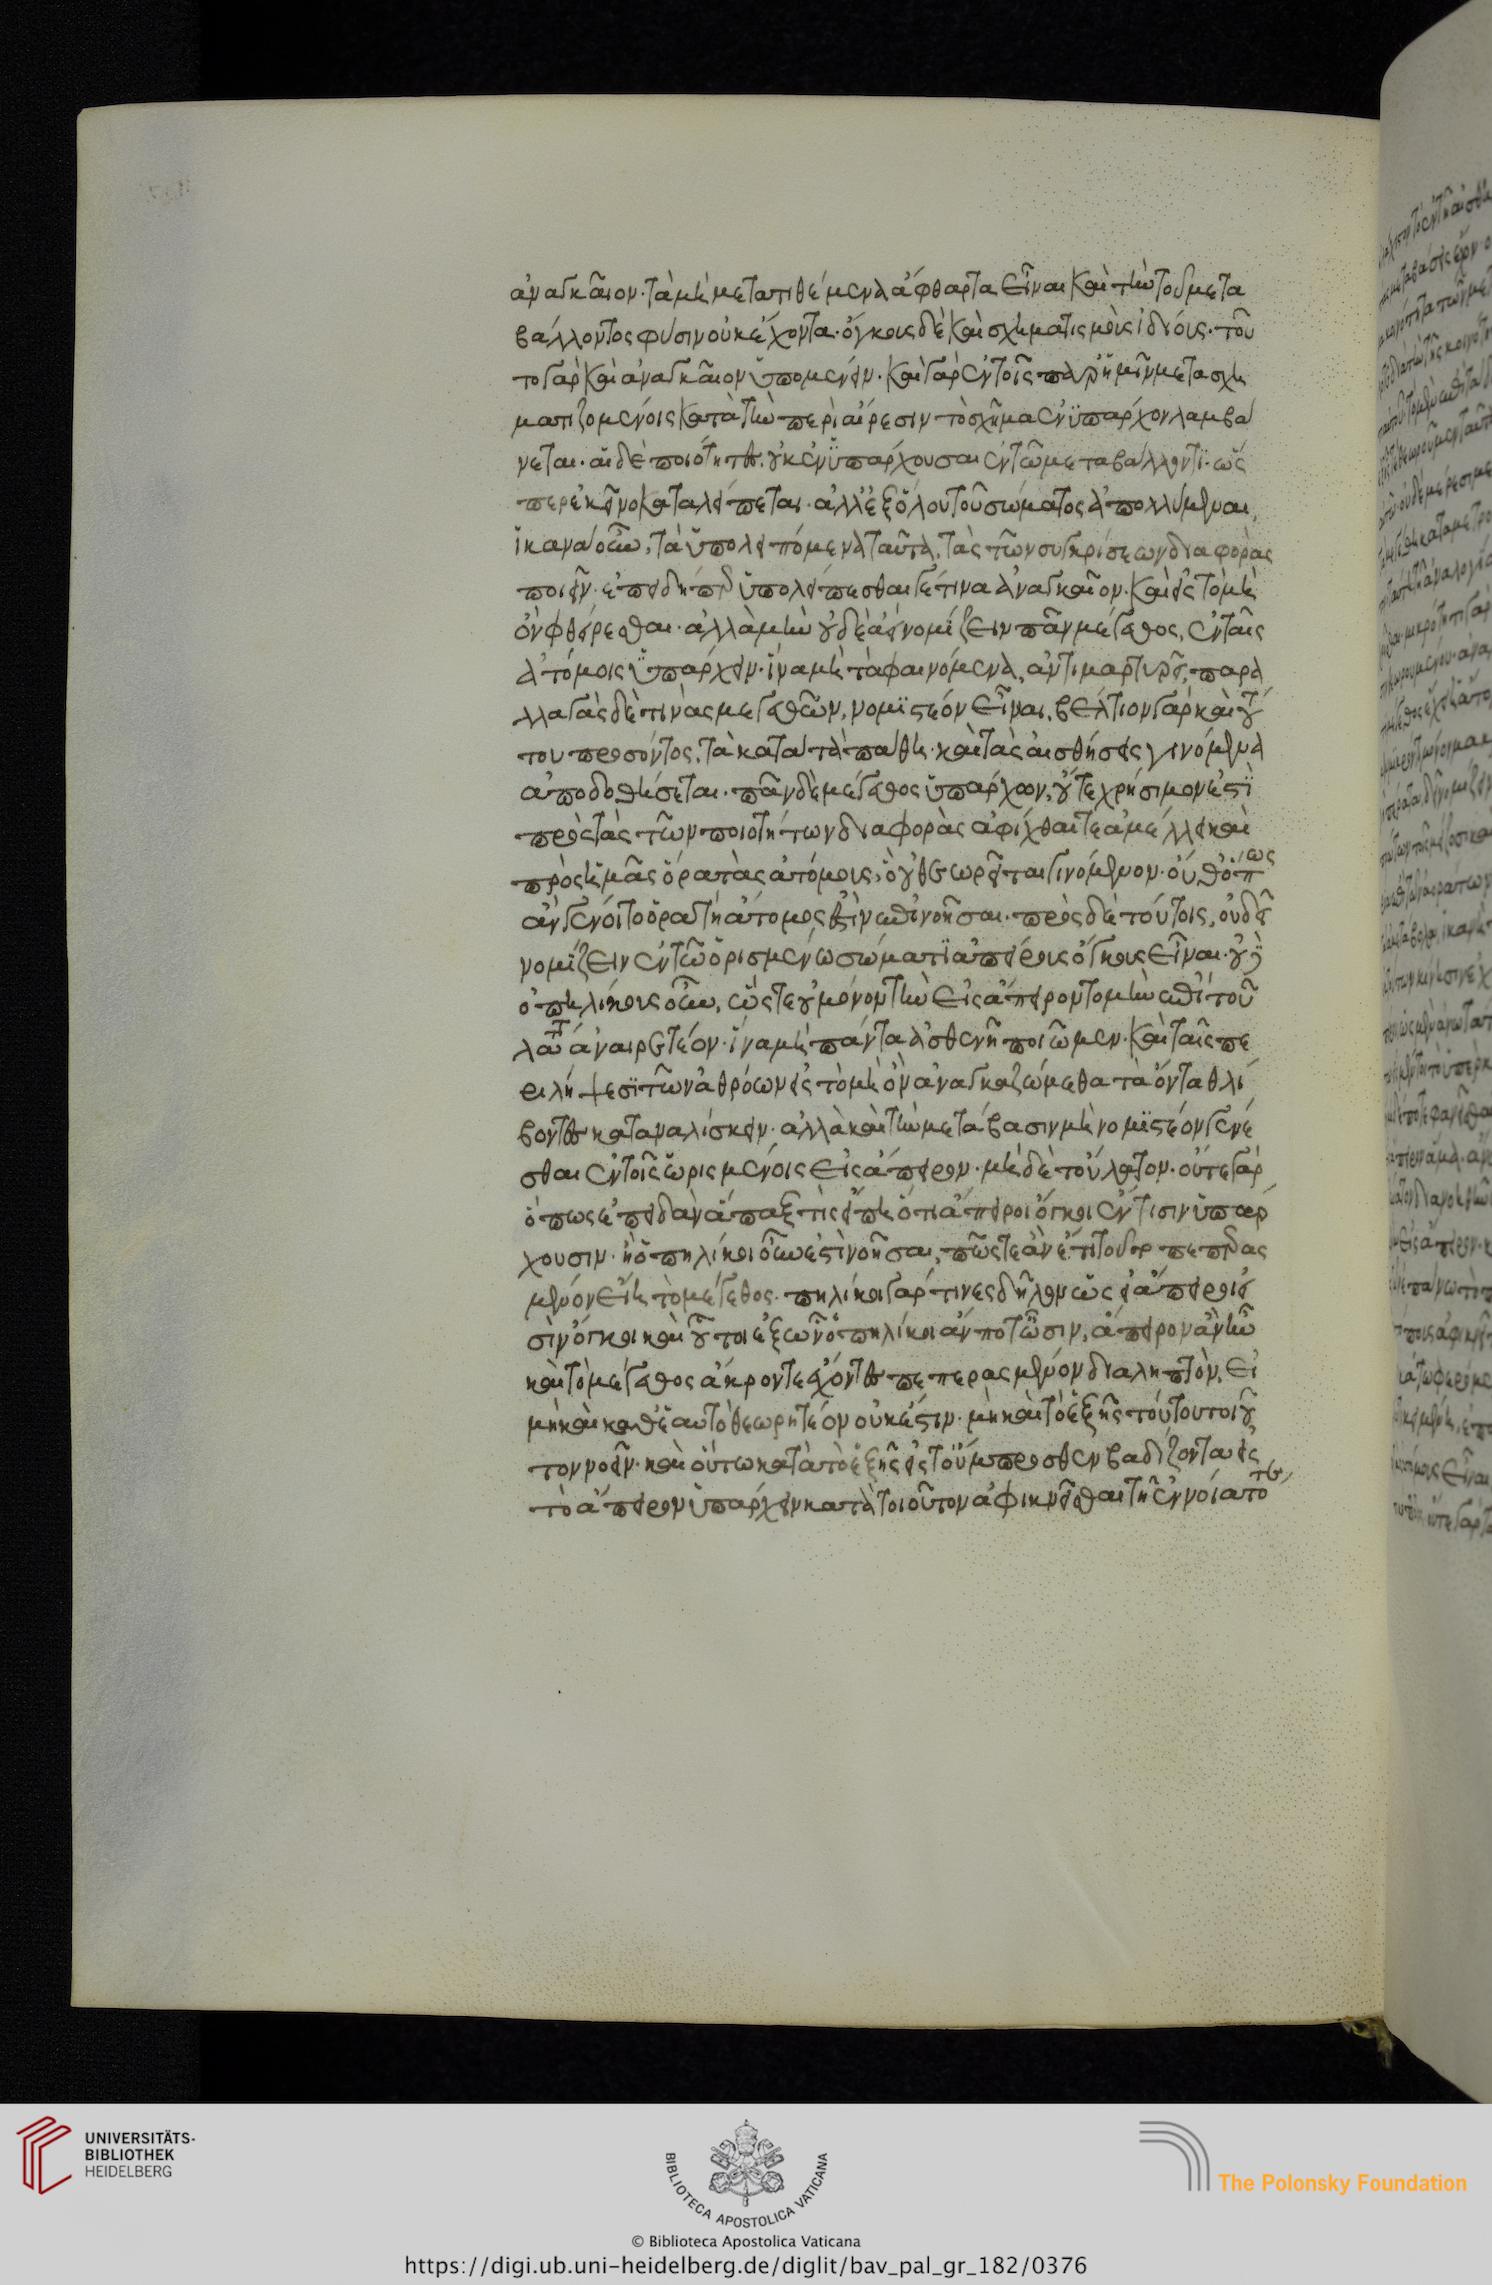 ἀναγκαῖον· τὰ μὴ μετατιθέμενα ἄφθαρτα εἶναι καὶ τὴν τοῦ μετα
βάλλοντος φύσιν οὐκ ἔχοντα· ὄγκους δὲ καὶ σχηματισμοὺς ἰδίους· τοῦ
το γὰρ καὶ ἀναγκαῖον ὑπομένειν· καὶ γὰρ ἐν τοῖς παρ' ἡμῖν μετασχη
ματιζομένοις κατὰ τὴν περὶ αἵρεσιν τὸ σχῆμα ἐνϋπάρχον λαμβά
νεται· αἱ δὲ ποιότητες οὐκ ἐνϋπάρχουσαι ἐν τῶ μεταβάλλοντι· ὥς
περ ἐκεῖνο καταλείπεται· ἀλλ' ἐξ ὅλου τοῦ σώματος ἀπολλύμεναι,
ἱκανὰ οὖν, τὰ ὑπολειπόμενα ταῦτα, τὰς τῶν συγκρίσεων διαφορὰς
ποιεῖν· ἐπειδήπερ ὑπολείπεσθαι γέ τινα ἀναγκαῖον· καὶ εἰς τὸ μὴ
ὂν φθείρεσθαι· ἀλλὰ μὴν οὐδὲ ἀεὶ νομίζειν πᾶν μέγεθος, ἐν ταῖς
ἀτόμοις ὑπάρχειν· ἵνα μὴ τὰ φαινόμενα, ἀντιμαρτυρῇ, παρα
λλαγὰς δὲ τινὰς μεγεθῶν, νομιστέον εἶναι, βέλτιον γὰρ καὶ τού
του προσόντος, τὰ κατὰ τὰ πάθη· καὶ τὰς αἰσθήσεις γινόμενα
ἀποδοθήσεται· πᾶν δὲ μέγεθος ὑπάρχον, οὔτε χρήσιμον ἐστὶ
πρὸς τὰς τῶν ποιοτήτων διαφορὰς ἀφίχθαι τε ἀμέλλει καὶ
πρὸς ἡμᾶς ὁρατὰς ἀτόμους, ὃ οὐ θεωρεῖται γινόμενον· οὔθ' ὅπως
ἂν γένοιτο ὁρατὴ ἄτομος ἔστιν ἐπινοῆσαι· πρὸς δὲ τούτοις, οὐδεῖ
νομίζειν ἐν τῶ ὡρισμένω σώματι ἀπείρους ὄγκους εἶναι· οὐδ'
ὁπηλίκους οὖν, ὥστε οὐ μόνον τὴν εἰς ἄπειρον τομὴν ἐπὶ τοῦ
λαττ ἀναιρετέον· ἵνα μὴ πάντα ἀσθενῆ ποιῶμεν· καὶ ταῖς πε
ριλήψεσι τῶν ἀθρόων εἰς τὸ μὴ ὂν ἀναγκαζώμεθα τὰ ὄντα θλί
βοντες καταναλίσκειν· ἀλλὰ καὶ τὴν μετάβασιν μὴ νομιστέον γενέ
σθαι ἐν τοῖς ὡρισμένοις εἰς ἄπειρον· μὴ δὲ τοὔλατον· οὔτε γὰρ
ὅπως ἐπειδὰν ἅπαξ τὶς εἴπη ὅτι ἄπειροι ὄγκοι ἔν τισιν ὑπάρ
χουσιν· ἢ ὁπηλίκοι οὖν ἐστὶ νοῆσαι, πῶς τε ἂν ἔτι τοῦδε πεπερας
μένον εἴη τὸ μέγεθος· πηλίκοι γάρ τινες δῆλον ὡς εἰ ἄπειροι εἰ
σὶν ὄγκοι καὶ οὗτοι ἐξ ὧν ὁπηλίκοι ἄν ποτ' ὦσιν, ἄπειρον ἂν ἦν
καὶ τὸ μέγεθος ἄκρον τε ἔχοντες πεπερασμένον διαληπτὸν, εἰ
μὴ καὶ καθ' ἑαυτὸ θεωρητέον οὐκ ἔστιν· μὴ καὶ τὸ ἑξῆς τούτου τοιοῦ
τον νοεῖν· καὶ οὕτω κατὰ τὸ ἑξῆς εἰς τοὔμπροσθεν βαδίζοντα εἰς
τὸ ἄπειρον ὑπάρχειν κατὰ τοιοῦτον ἀφικνεῖσθαι τῆ ἐννοία τό τε
UNIVERSITÄTS-
BIBLIOTHEK
HEIDELBERG
BIBLIOTECA APOSTOLICA VATICANA
The Polonsky Foundation
© Biblioteca Apostolica Vaticana
https://digi.ub.uni-heidelberg.de/diglit/bav_pal_gr_182/0376